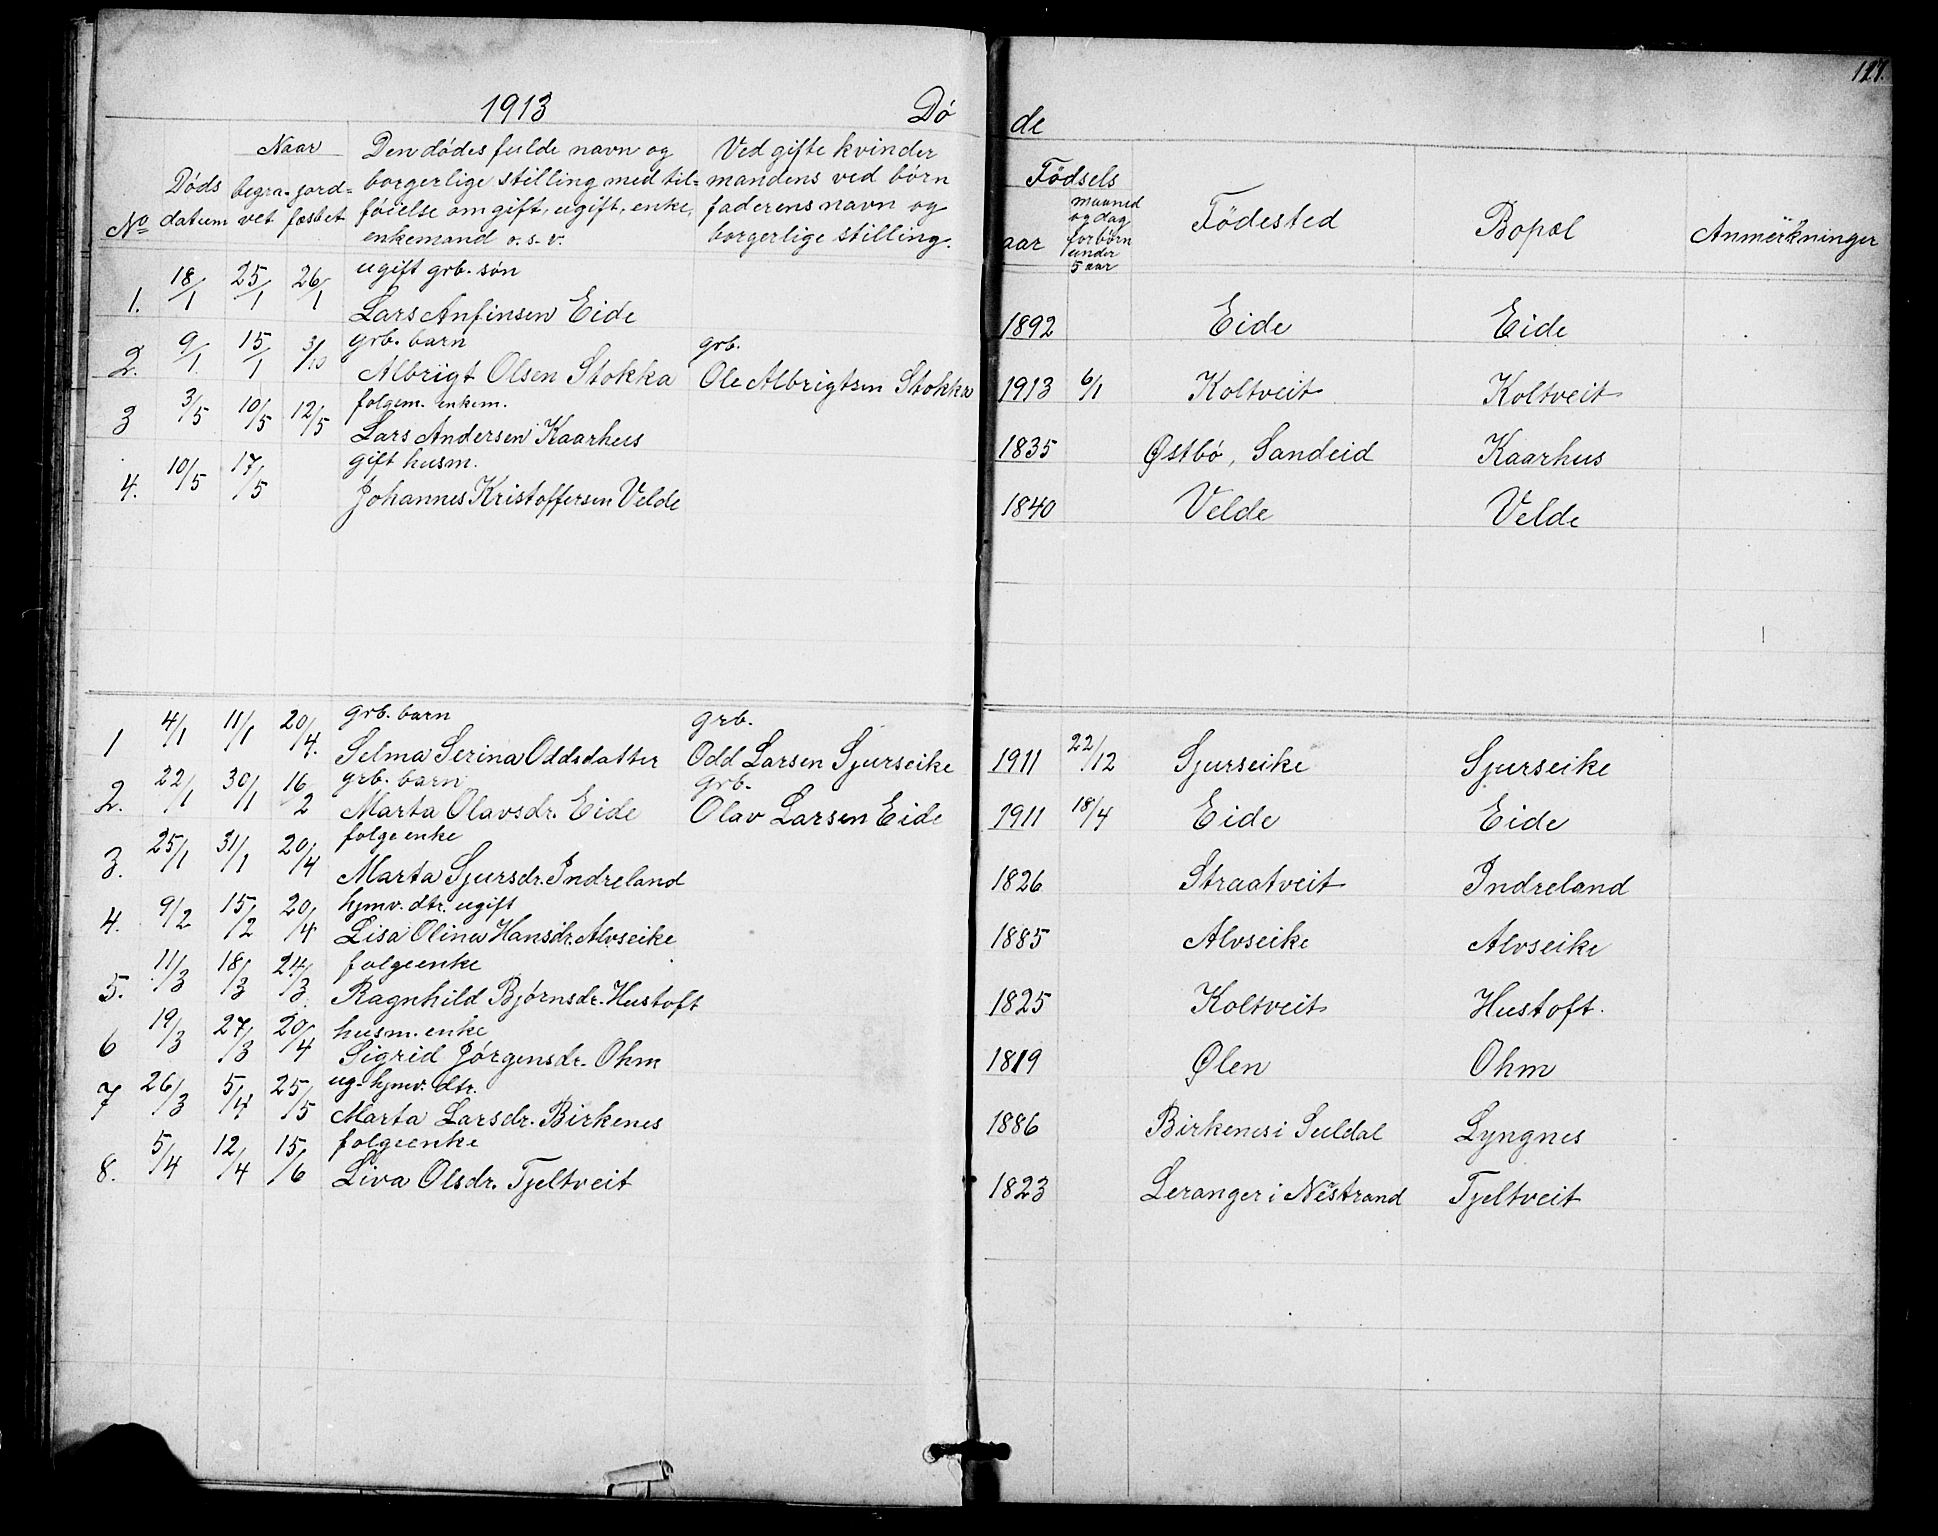 127.
1913 Døde
No Døds datum Naar begravet jordfæsbet Den dødes fulde navn og borgerlige stilling med tilføielse om gift, ugift, enke, enkemand o. s. v. Ved gifte kvinder mandens ved børn faderens navn og borgerlige stilling. Fødsels aar maaned og dag for børn under 5 aar Fødested Bopæl Anmerkninger
1. 18/1 25/1 26/1 ugift grb. søn
Lars Anfinsen Eide 1892 Eide Eide
2. 9/1 15/1 grb. barn grb.
Albrigt Olsen Stokka Ole Albrigtsen Stokka 1913 6/1 Koltveit Koltveit
3 3/5 10/5 12/5 folgem. enkem.
Lars Andersen Kaarhus 1835 Østbø, Sandeid Kaarhus
4. 10/5 17/5 gift husm.
Johannes Kristoffersen Velde 1840 Velde Velde
1 4/1 11/1 20/4. grb. barn grb.
Selma Serina Oddsdatter Odd Larsen Sjurseike 1911 22/12 Sjurseike Sjurseike
2. 22/1 30/1 16/2 grb. barn grb.
Marta Olavsdr. Eide Olav Larsen Eide 1911 18/4 Eide Eide
3. 25/1 31/1 20/4 folge enke
Marta Sjursdr. Indreland 1826 Straatveit Indreland
4. 9/2 15/2 20/4 hjmv. dtr. ugift
Lisa Olina Hansdr. Alvseike 1885 Alvseike Alvseike
5. 11/3 18/3 24/3 folgeenke
Ragnhild Bjørnsdr. Hustoft 1825 Koltveit Hustoft.
6 19/3 27/3 20/4 husm. enke
Sigrid Jørgensdr. Ohm 1819 Ølen Ohm
7 26/3 5/4 25/5 ug. hjmv. dtr.
Marta Larsdr. Birkenes 1886 Birkenes i Suldal Lyngnes
8. 5/4 12/4 15/6 folgeenke
Liva Olsdr. Tjeltveit 1823 Leranger i Nestrand Tjeltveit